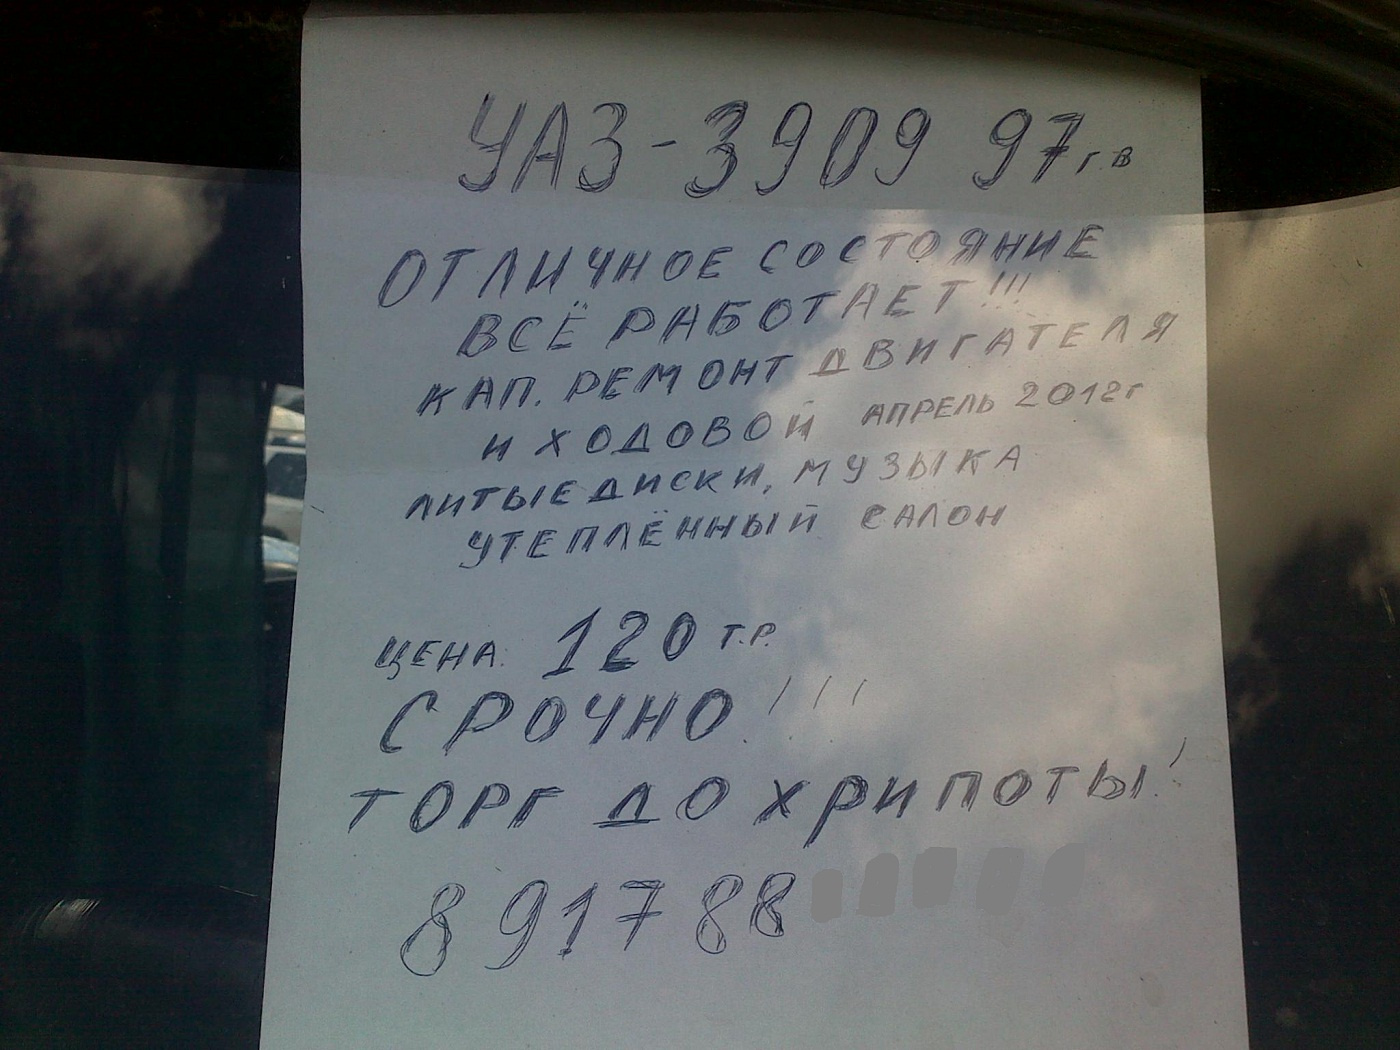 УАЗ-3909 97 г.в
ОТЛИЧНОЕ СОСТОЯНИЕ
ВСЁ РАБОТАЕТ!!!
КАП. РЕМОНТ ДВИГАТЕЛЯ
И ХОДОВОЙ АПРЕЛЬ 2012г
ЛИТЫЕ ДИСКИ, МУЗЫКА
УТЕПЛЁННЫЙ САЛОН
ЦЕНА: 120 Т.Р.
СРОЧНО!!!
ТОРГ ДО ХРИПОТЫ!
8 917 88